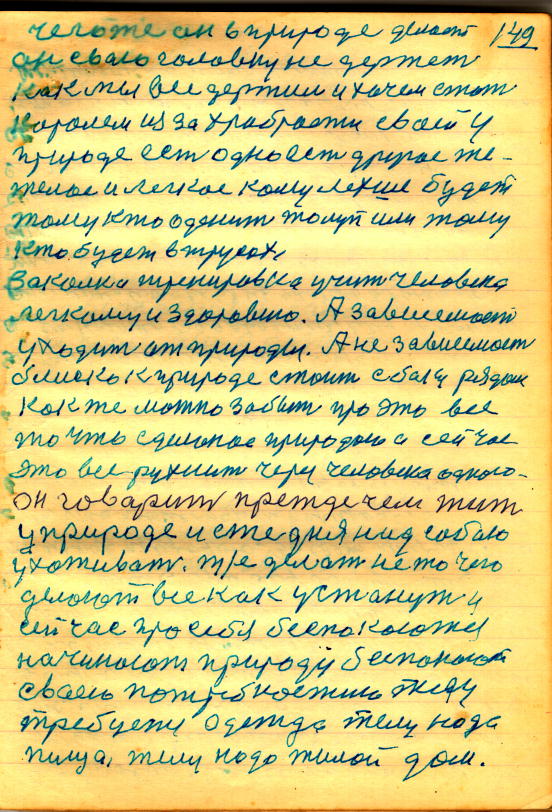 чегоже он в природе делает 149
он сваю головку не держет
как мы все держим и хочем стат
королем из за храбрасти своей у
природе ест одно ест другое тя-
желое и легкое кому лехше будет
тому кто оденит толуп или тому
кто будет в трусах.
Закалка тренировка учит человека
легкому и здоровию. А зависемост
уходит от природы. А не зависемост
близко к природе стоит с баку рядом
как же можно забыт про это все
то что сделоное природою а сейчас
это все рухнит через человека одного-
он говарит прежде чем жит
у природе и сте дня над собою
ухаживат. т/е делат не то чего
делают все как устанут и
сейчас про себя беспокоются
начинают природу беспокоют
сваею потребностию телу
требуется одежда телу нада
пища, телу надо жилой дом.